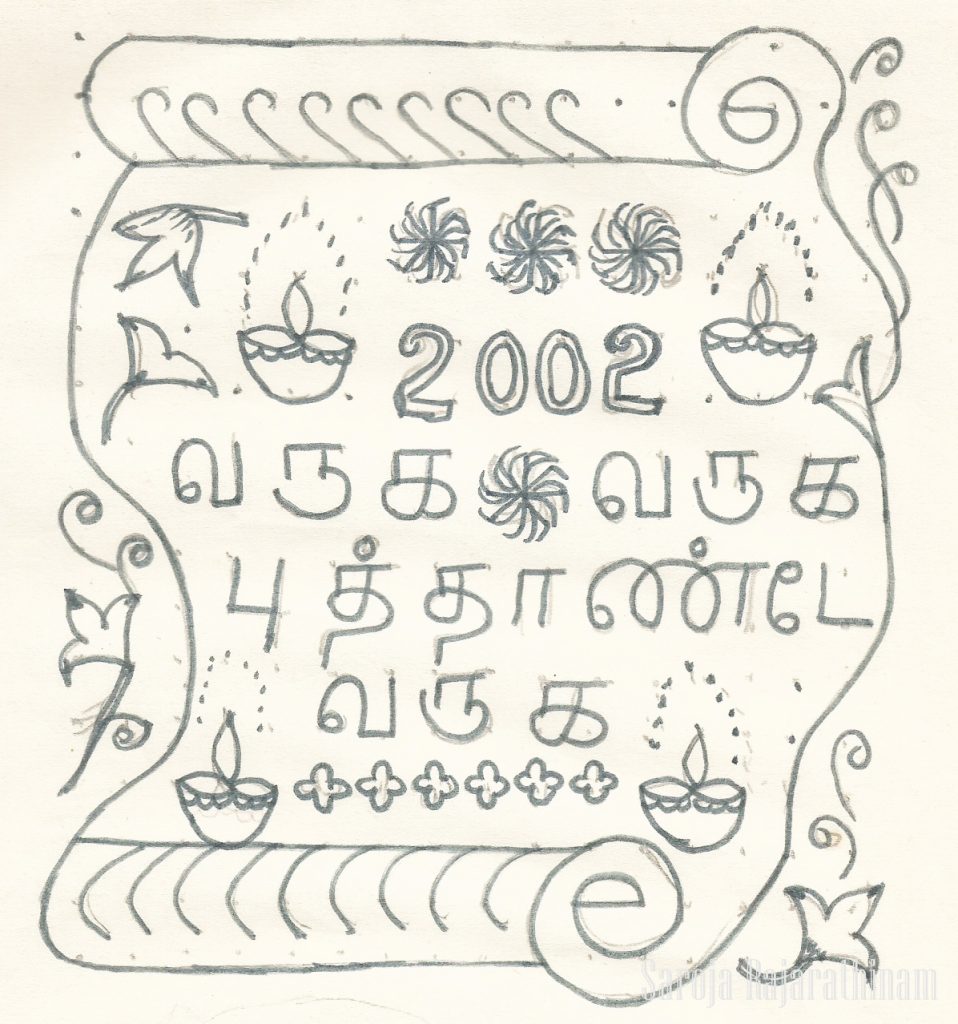 2002
வருக வருக
புத்தாண்டே
வருக
Saroja Rajarathinam